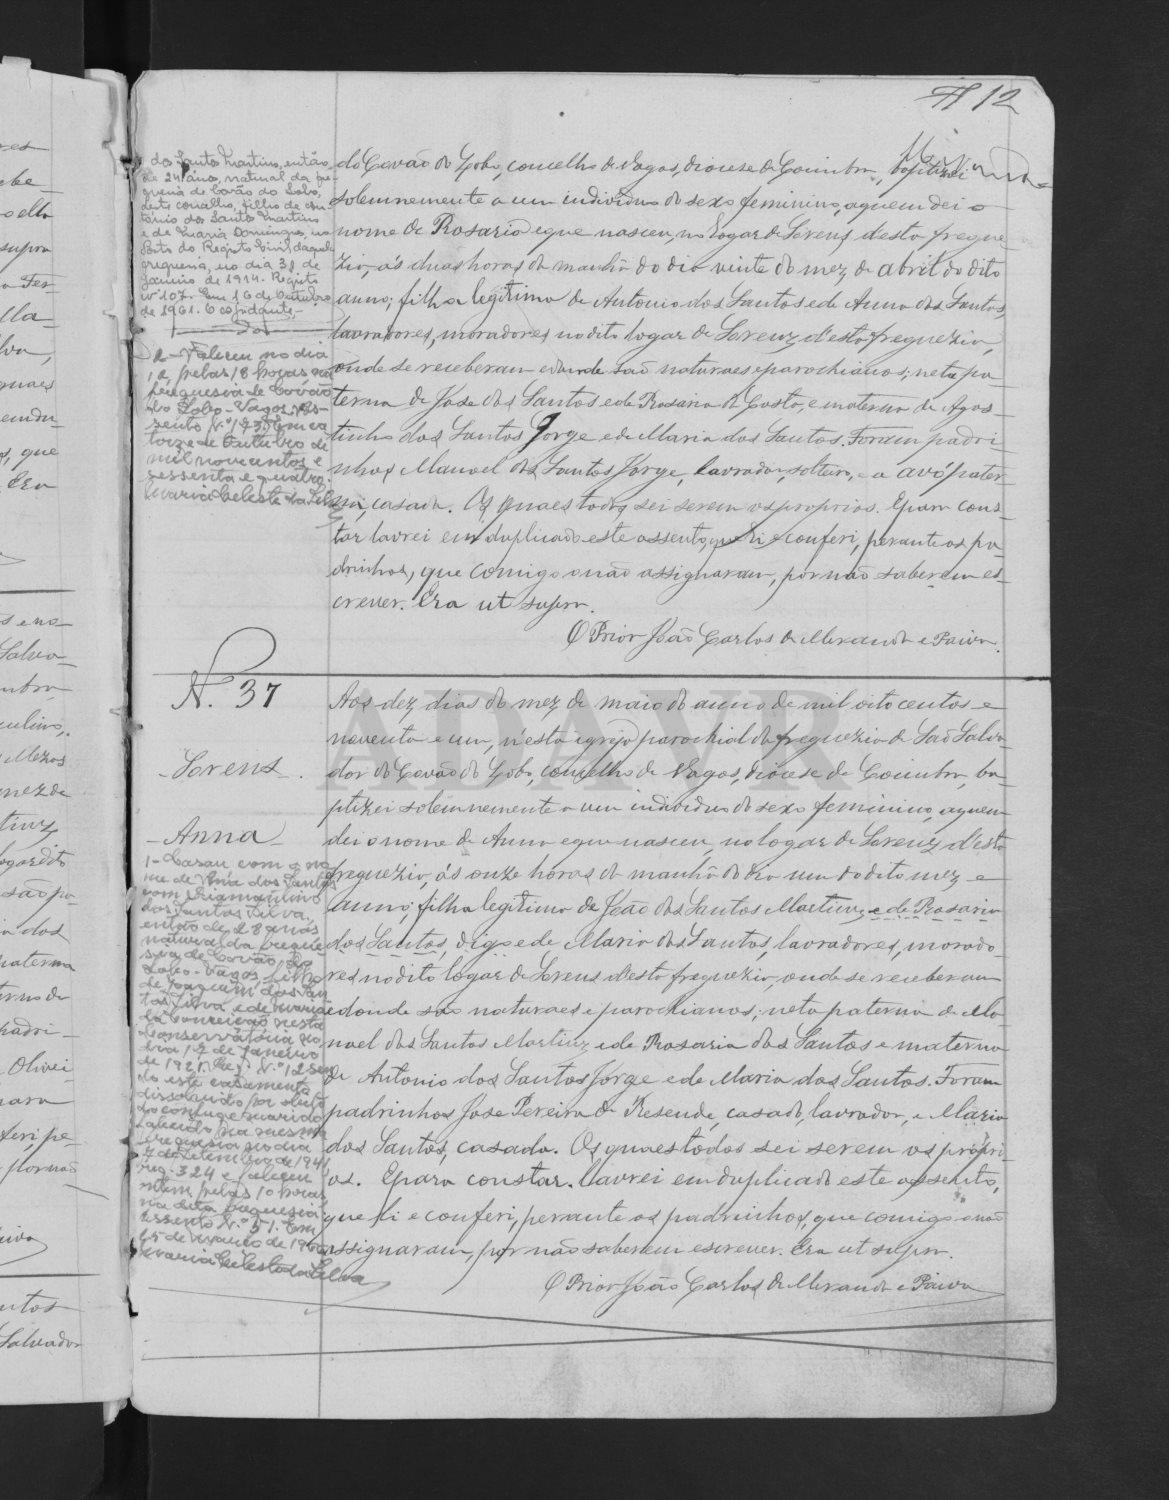 12
Miranda
do Covão do Lobo, concelho de Vagos, diocese de Coimbra, baptizei
solemnemente a um individuo do sexo feminino, a quem dei o
nome de Rosaria e que nasceu, no logar de Lorenz, desta fregue
zia, ás duas horas da manhã do dia vinte do mez de abril do dito
anno; filha legitima de Antonio dos Santos e de Anna dos Santos,
lavradores, moradores no dito logar de Lorenz d'esta freguezia,
onde se receberam e d'onde são naturaes e parochianos; neta pa-
terna de José dos Santos e de Rosaria da Costa, e materna de Agos-
tinho dos Santos Jorge e de Maria dos Santos. Foram padri-
nhos Manoel dos Santos Jorge, lavrador, solteiro, e a avó pater-
na, casada. Os quaes todos sei serem os proprios. E para cons-
tar lavrei em duplicado este assento, que li e conferi, perante os pa-
drinhos, que comigo o não assignaram, por não saberem es-
crever. Era ut supra.
O Prior João Carlos de Miranda e Paiva.
dos Santos Martins, então
de 24 anos, natural da fre-
guesia de Covão do Lobo,
deste concelho, filho de An-
tónio dos Santos Martins
e de Maria Domingues, no
Posto do Registo Civil daquela
freguesia, no dia 31 de
Janeiro de 1914. Registo
nº 107. Em 16 de Outubro
de 1961. O ajudante,
2 - Faleceu no dia
12 pelas 18 horas na
freguesia de Covão
do Lobo - Vagos. As-
sento N.º 123. Em ca
torze de Outubro de
mil novecentos e
sessenta e quatro.
Maria Celeste da Silva
N. 37
Lorenz
Anna
Aos dez dias do mez de maio do anno de mil oitocentos e
noventa e um, n'esta igreja parochial da freguezia de São Salva-
dor do Covão do Lobo, concelho de Vagos, diocese de Coimbra, ba-
ptizei solemnemente a um individuo do sexo feminino, a quem
dei o nome de Anna e que nasceu, no logar de Lorenz d'esta
freguezia, ás onze horas da manhã do dia um do dito mez e
anno; filha legitima de João dos Santos Martins, e de Rosaria
dos Santos, digo e de Maria dos Santos, lavradores, morado-
res no dito logar de Lorenz d'esta freguezia, onde se receberam
e donde são naturaes e parochianos; neta paterna de Ma-
noel dos Santos Martins e de Rosaria dos Santos e materna
de Antonio dos Santos Jorge e de Maria dos Santos. Foram
padrinhos José Pereira de Resende, casado, lavrador, e Maria
dos Santos, casada. Os quaes todos sei serem os propri-
os. E para constar lavrei em duplicado este assento,
que li e conferi, perante os padrinhos, que comigo o não
assignaram, por não saberem escrever. Era ut supra.
O Prior João Carlos de Miranda e Paiva
1 - Casou com o no
me de Ana dos Santos
com Diamantino
dos Santos Silva,
então de 28 anos
natural da fregue
sia de Covão do
Lobo - Vagos, filho
de Joaquim dos San
tos Silva e de Maria
da Conceição nesta
Conservatória no
dia 12 de Janeiro
de 1921. Reg. N.º 12 sen
do este casamento
dissolvido por óbito
do conjuge marido
falecido na mesma
freguesia no dia
7 de Setembro de 194
reg. 324 e faleceu
pelas 10 horas
na dita freguesia
assento N.º 51. Em
de Março de 19
Maria Celeste da Silva
ADAVR